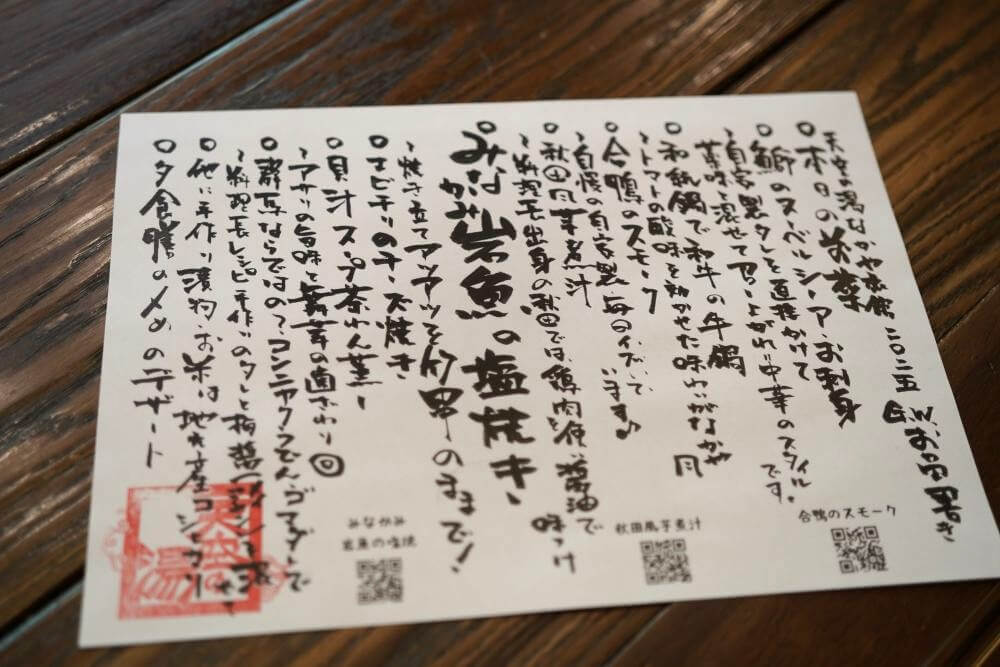 天空の湯なかや旅館 二〇二五 G.W.お品書き
○本日のお献立
○鰤のヌーベルシーアお刺身
〜自家製タレを直接かけて
薬味と混ぜて召し上がれ!中華のスタイルです。
○和紙鍋で和牛の牛鍋
〜トマトの酸味を効かせた味わいがなかや風
○合鴨のスモーク
〜自慢の自家製毎のイブして います♪
○秋田風芋煮汁
〜料理長出身の秋田では、鶏肉を使い醤油で味つけ
○みなかみ岩魚の塩焼き、
〜焼き立てアツアツをそのままで!
○エビチリのチーズ焼き
○貝汁スープ茶わん蒸し
〜アサリの旨味と舞茸の歯ざわり◎
○群馬ならではの?コンニャクでん、ゴマダレで
〜料理長レシピ手作りのタレと
○他に手作り漬物・お米は地元産コシヒカリ
○夕食膳の〆のデザート
合鴨のスモーク
秋田風芋煮汁
みなかみ
岩魚の塩焼
天空の湯